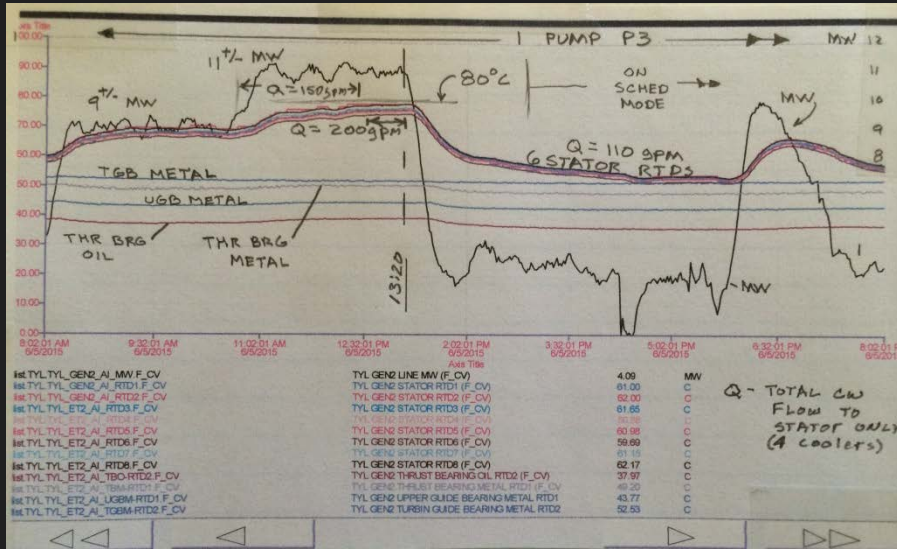 Axis Title
1 PUMP P3
MW 12
00.00
11+/- MW
11
90.00
Q=150gpm
80°C
ON
SCHED
MODE
10
80.00
9+/- MW
MW
9
70.00
Q = 200gpm
Q = 110 gpm
8
60.00
6 STATOR RTDS
TGB METAL
50.00
UGB METAL
40.00
THR BRG
OIL
THR BRG
METAL
30.00
13:20
1
20.00
MW
10.00
0.00
8:02:01 AM
6/5/2015
9:32:01 AM
6/5/2015
11:02:01 AM
6/5/2015
12:32:01 PM
6/5/2015
2:02:01 PM
6/5/2015
3:32:01 PM
6/5/2015
5:02:01 PM
6/5/2015
6:32:01 PM
6/5/2015
8:02:01
6/5/2015
Axis Title
list.TYL.TYL_GEN2_AI_MW.F_CV TYL GEN2 LINE MW (F_CV) 4.09 MW
list.TYL.TYL_GEN2_AI_RTD1.F_CV TYL GEN2 STATOR RTD1 (F_CV) 61.00 C
list.TYL.TYL_GEN2_AI_RTD2.F_CV TYL GEN2 STATOR RTD2 (F_CV) 62.00 C
list.TYL.TYL_ET2_AI_RTD3.F_CV TYL GEN2 STATOR RTD3 (F_CV) 61.65 C
list.TYL.TYL_ET2_AI_RTD4.F_CV TYL GEN2 STATOR RTD4 (F_CV) C
list.TYL.TYL_ET2_AI_RTD5.F_CV TYL GEN2 STATOR RTD5 (F_CV) 60.98 C
list.TYL.TYL_ET2_AI_RTD6.F_CV TYL GEN2 STATOR RTD6 (F_CV) 59.69 C
list.TYL.TYL_ET2_AI_RTD7.F_CV TYL GEN2 STATOR RTD7 (F_CV) 61.15 C
list.TYL.TYL_ET2_AI_RTD8.F_CV TYL GEN2 STATOR RTD8 (F_CV) 62.17 C
list.TYL.TYL_ET2_AI_TBO-RTD2.F_CV TYL GEN2 THRUST BEARING OIL RTD2 (F_CV) 37.97 C
list.TYL.TYL_ET2_AI_TBM-RTD1.F_CV TYL GEN2 THRUST BEARING METAL RTD1 (F_CV) 49.20 C
list.TYL.TYL_ET2_AI_UGBM-RTD1.F_CV TYL GEN2 UPPER GUIDE BEARING METAL RTD1 43.77 C
list.TYL.TYL_ET2_AI_TGBM-RTD2.F_CV TYL GEN2 TURBIN GUIDE BEARING METAL RTD2 52.53 C
Q - TOTAL CW
FLOW TO
STATOR ONLY
(4 COOLERS)